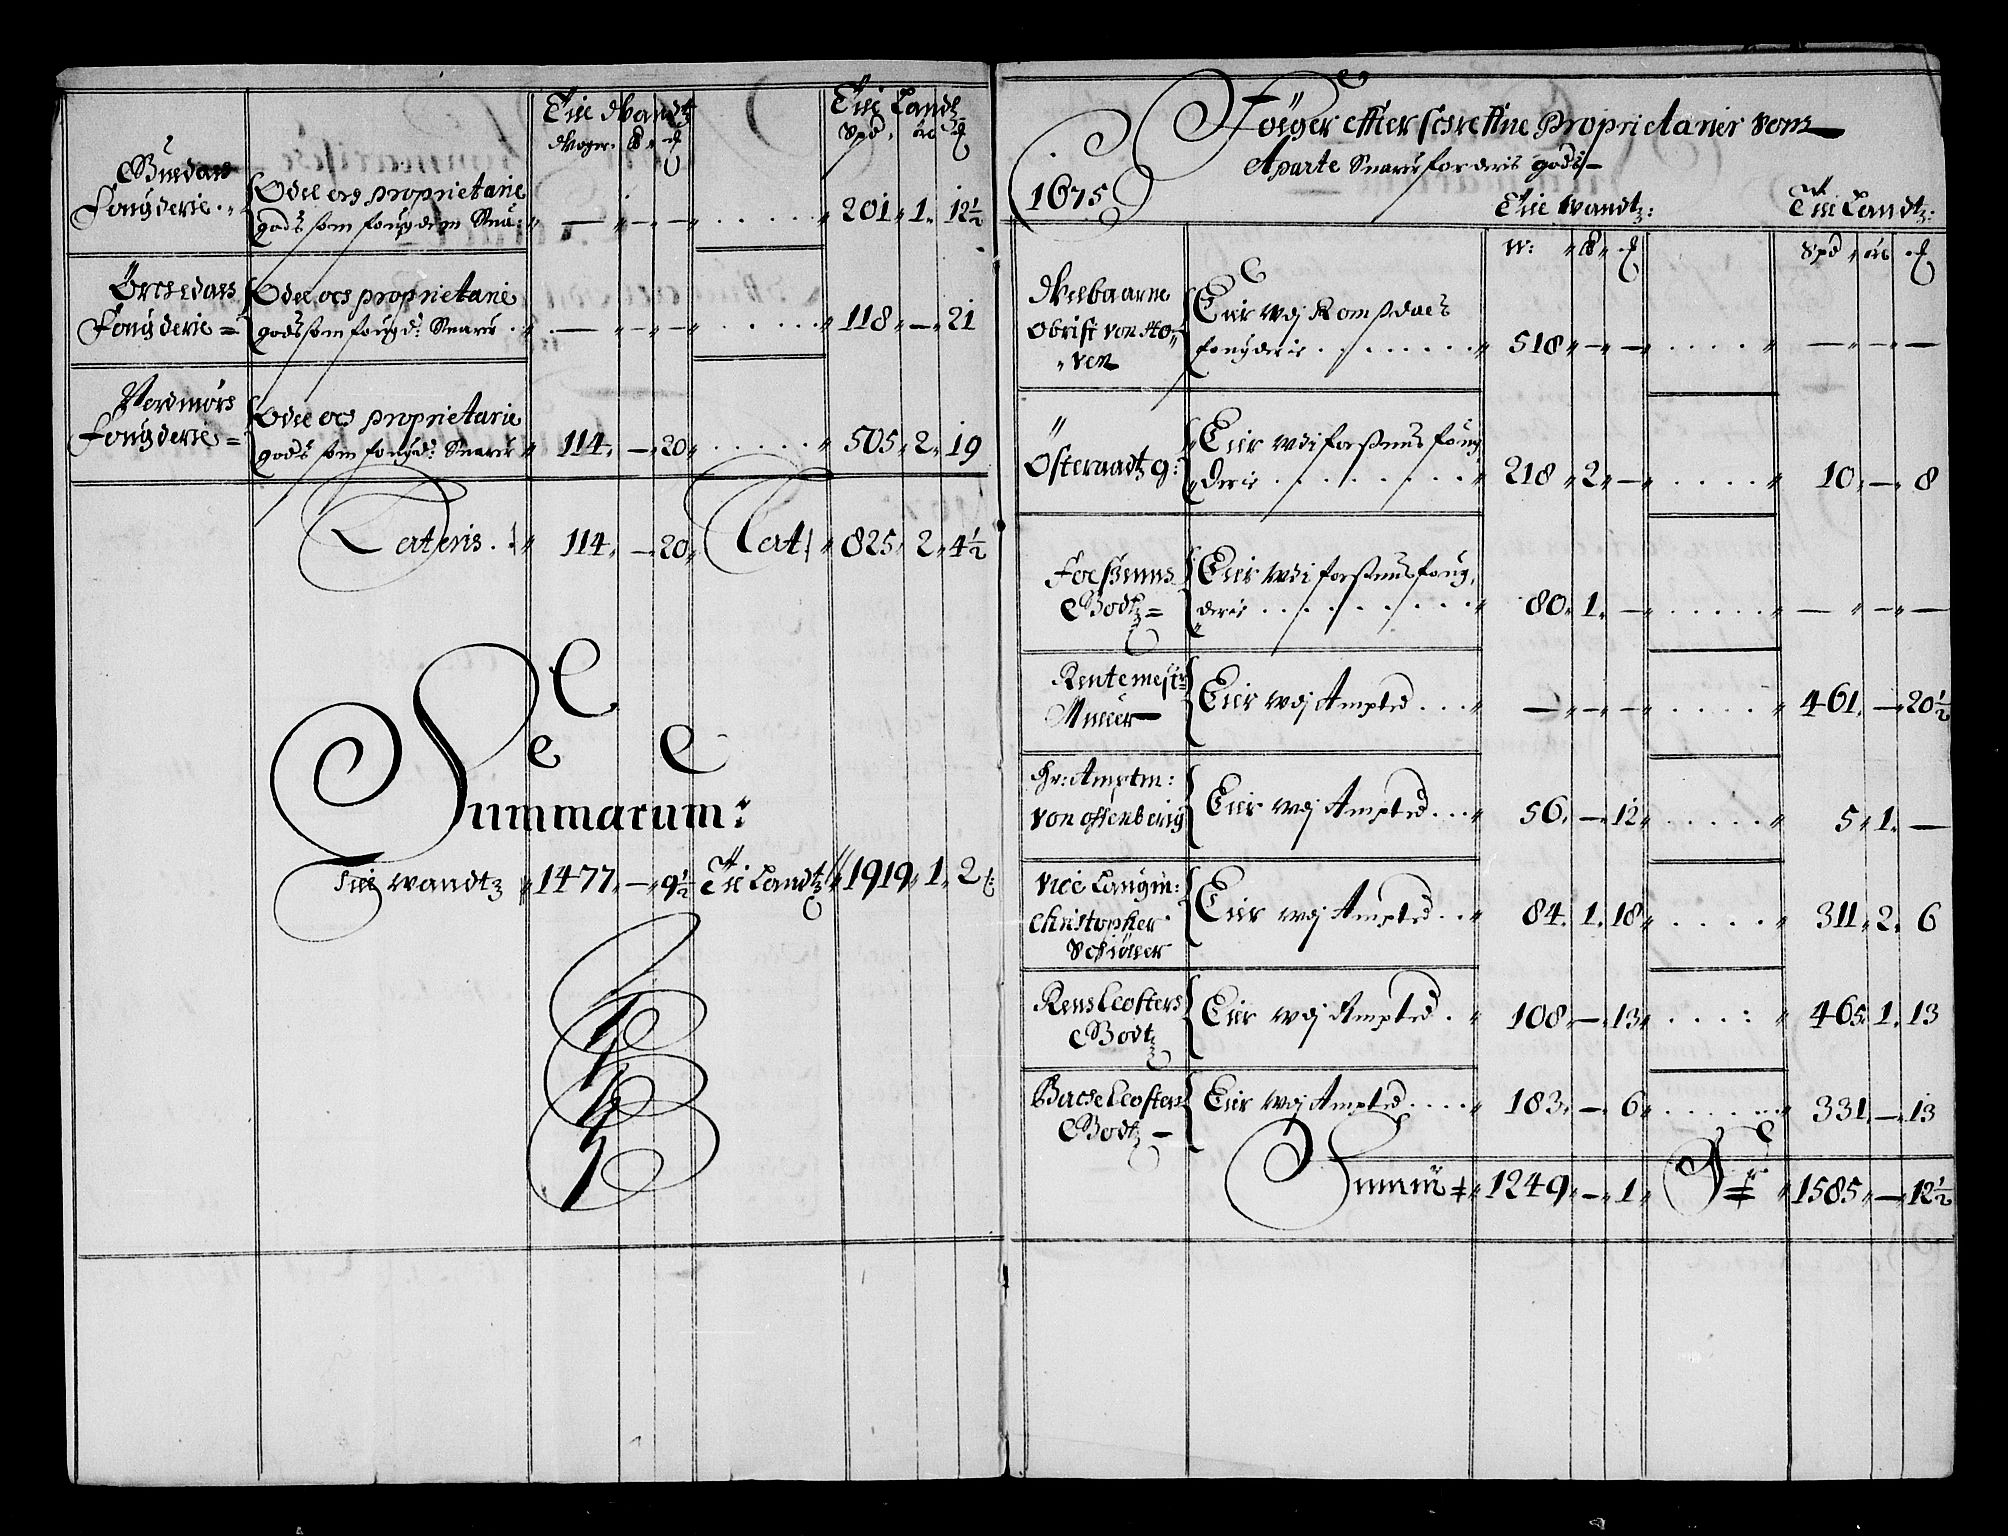 Till Wandtz
Till Landtz
Woger. ℔.
Spd. ör
Guldals
Fougderie
Odel och proprietarie
godß som fougden Sua:
— — — 201. 1. 12½
Örchedals
Fougderie =
Odel och proprietarie
godß som fougd: Suarer
— — — 118. — 21
Nordmørs
Fougderie =
Odel och proprietarie
godß som fougd: Suarer
114. — 20. 505. 2. 19
Lateris. 114. — 20. Lat. 825. 2. 4½
Summarum:
Till wandtz 1477. — 9½ Till Landtz 1919. 1. 2
1675
Følger effterschreffne Proprietarier Som
Aparte Suarer for deris godß
Till Wandtz:
Till Landtz:
W: ℔.
Spd. ör
Welbaarne
Obrist von Ho-
ven
Eier Wdj Romßdals
fougderie
518. — — — — —
Østeraadtz g:
Eier wdi foßens foug
derie
218. 2. — 10. — 8
Foeßens
Godtz =
Eier wdi foßens foug
derie
80. 1. — — — —
Rentemestr
Muller
Eier Wdj Ampted
— — — 461. — 20½
Hr: Amptm:
von offenberig
Eier Wdj Ampted
56. — 12. 5. 1. —
Vice Laugm:
Christopher
Schiøller
Eier wdj Ampted
84. 1. 18. 311. 2. 6
Rensclosters
Godtz
Eier wdj Ampted
108. — 13. 465. 1. 13
Bache Closters
Godtz
Eier Wdj Ampted
183. — 6. 331. — 13
Summa 1249. — 1. 1585. — 12½